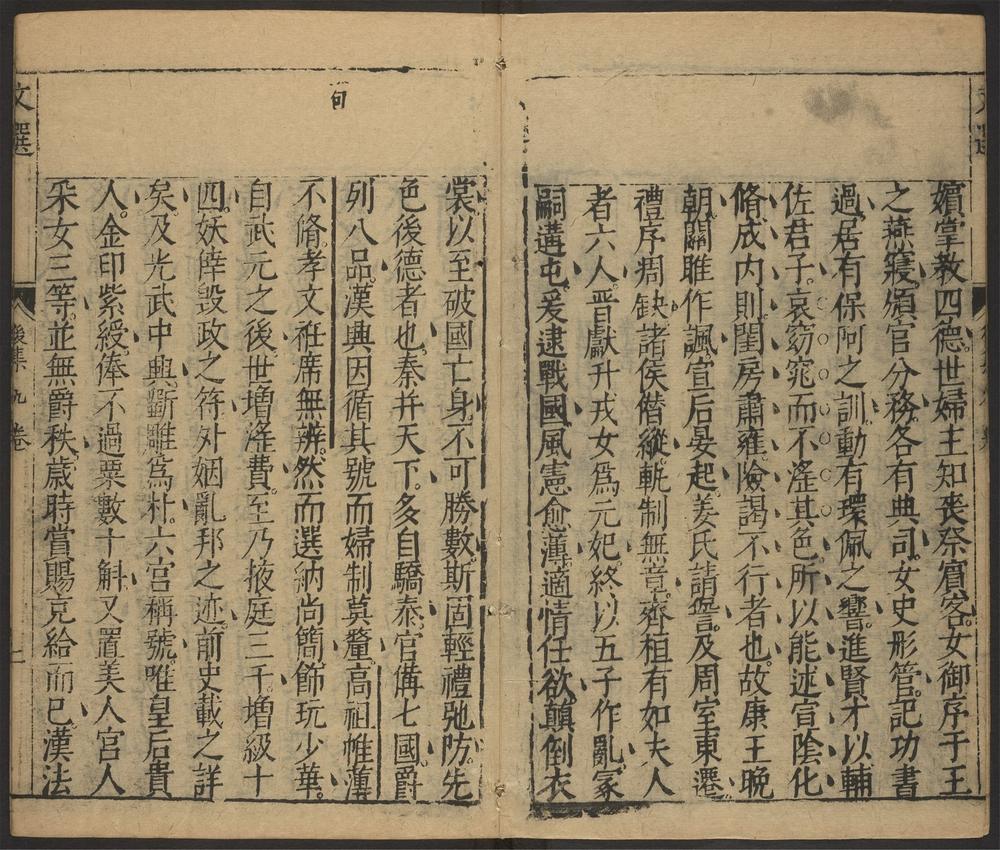 文選
嬪掌教四德。世婦主知喪祭賓客。女御序于王
之燕寢。頒官分務。各有典司。女史形管。記功書
過。居有保阿之訓。動有環佩之響。進賢才以輔
佐君子。哀窈窕而不淫其色。所以能述宣陰化
脩成内則。閨房肅雍。險謁不行者也。故康王晚
朝。關雎作諷。宣后晏起。姜氏請諐。及周室東遷。
禮序凋缺。諸侯僭縱。軌制無章。齊桓有如夫人
者六人。晉獻升戎女爲元妃。終以五子作亂。冢
嗣遘屯。爰逮戰國。風憲愈薄。適情任欲。顛倒衣
裳。以至破國亡身。不可勝數。斯固輕禮弛防。先
色後德者也。秦并天下。多自驕泰。官備七國。爵
列八品。漢興因循其號。而婦制莫釐。高祖帷薄
句
不脩。孝文衽席無辨。然而選納尚簡。飾玩少華。
自武元之後。世增淫費。至乃掖庭三千。增級十
四。妖倖毁政之符。外姻亂邦之迹。前史載之詳
矣。及光武中興。斲雕爲朴。六宮稱號。唯皇后貴
人。金印紫綬。俸不過粟數十斛。又置美人宮人
采女三等。並無爵秩。歲時賞賜充給而已。漢法
文選
後集九卷
二